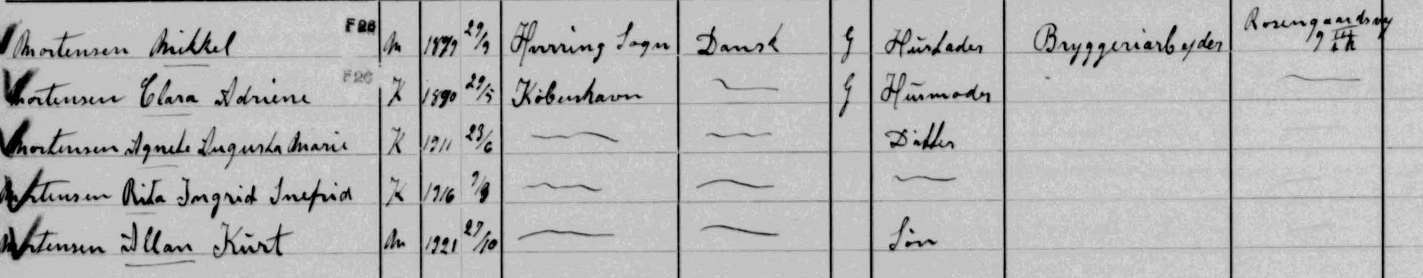 Mortensen Mikkel F26 M 1879 29/9 Hvirring Sogn Dansk G Husfader Bryggeriarbejder Rosengaardsvej 9 III th
Mortensen Clara Adriene F26 K 1890 29/5 København — G Husmoder —
Mortensen Agnete Augusta Marie K 1911 23/6 — — Datter
Mortensen Rita Ingrid Snefrid K 1916 9/9 — — —
Mortensen Allan Kurt M 1921 27/10 — — Søn